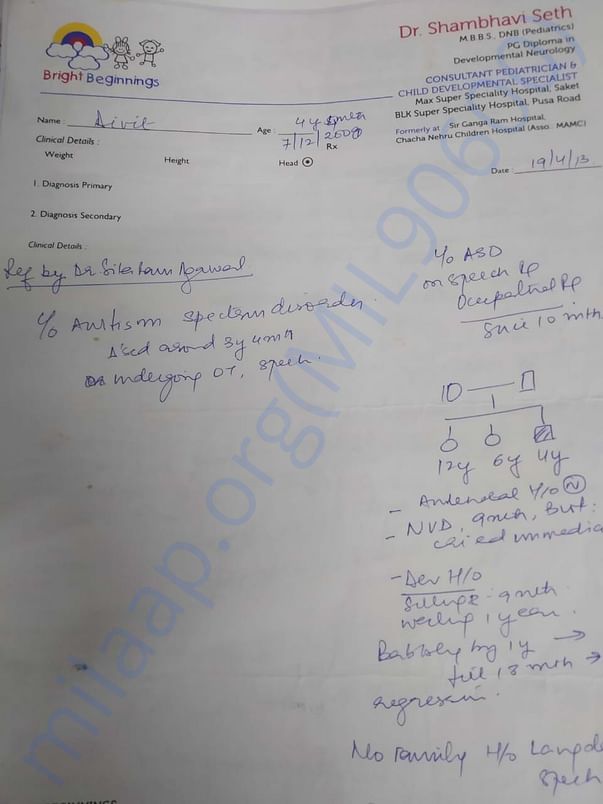 Bright Beginnings
Dr. Shambhavi Seth
M.B.B.S., DNB (Pediatrics)
PG Diploma in
Developmental Neurology
CONSULTANT PEDIATRICIAN &
CHILD DEVELOPMENTAL SPECIALIST
Max Super Speciality Hospital, Saket
BLK Super Speciality Hospital, Pusa Road
Formerly at : Sir Ganga Ram Hospital,
Chacha Nehru Children Hospital (Asso. MAMC)
Name : Divit Age : 4y 4mth
7/12/2008
Rx
Date : 19/4/13
Clinical Details :
Weight Height Head
1. Diagnosis Primary
2. Diagnosis Secondary
Clinical Details :
Ref by Dr Agarwal
c/o Autism spectrum disorder
around 3y 4mth
undergoing OT, speech.
c/o ASD
on speech
Occupational
since 10 mth
12y 6y 4y
- Antenatal H/o N
- NVD, 9mth,
cried immedia
- Dev H/o
Sitting - 9mth
walking 1 year.
Babbling by 1y →
till 18 mth →
regression.
No family H/o
speech
milaap.org(MiL906